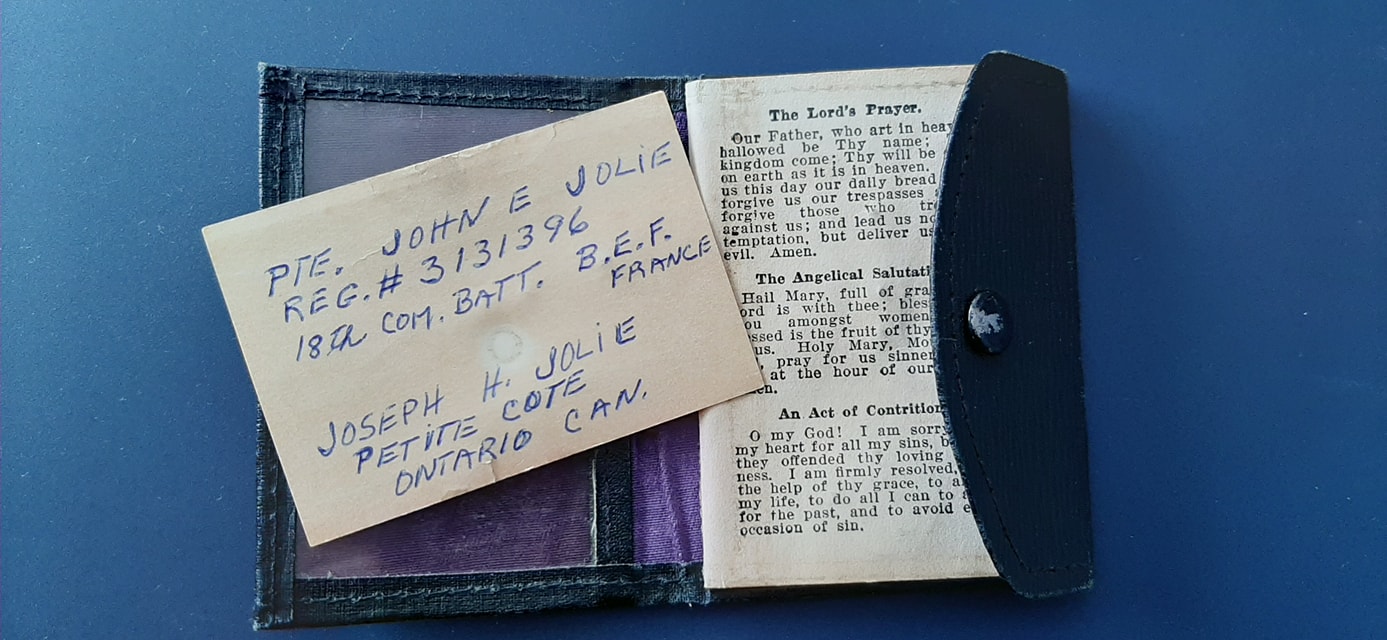 PTE. JOHN E JOLIE
REG. # 3131396
18th COM. BATT. B.E.F.
FRANCE
JOSEPH H. JOLIE
PETITE COTE
ONTARIO CAN.
The Lord's Prayer.
Our Father, who art in
hallowed be Thy name;
kingdom come; Thy will be
on earth as it is in heaven.
us this day our daily bread
forgive us our trespasses
forgive those who
against us; and lead us
temptation, but deliver
evil. Amen.
The Angelical
Hail Mary, full of
is with thee;
amongst women
is the fruit of thy
Holy Mary,
pray for us
at the hour of our
An Act of Contrition
O my God! I am sorry
my heart for all my sins,
they offended thy loving
ness. I am firmly resolved,
the help of thy grace, to
my life, to do all I can to
for the past, and to avoid
occasion of sin.